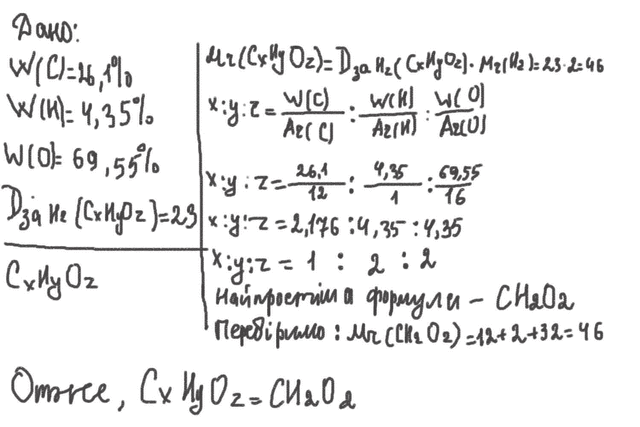 Дано:
W(C)=26,1%
W(H)=4,35%
W(O)=69,55%
Dза H2(CxHyOz)=23
CxHyOz
Mr(CxHyOz)=Dза H2(CxHyOz)·Mr(H2)=23·2=46
x:y:z=W(C)/Ar(C):W(H)/Ar(H):W(O)/Ar(O)
x:y:z=26,1/12:4,35/1:69,55/16
x:y:z=2,176:4,35:4,35
x:y:z=1:2:2
Найпростіша формули – CH2O2
Перевіримо: Mr(CH2O2)=12+2+32=46
Отже, CxHyOz=CH2O2